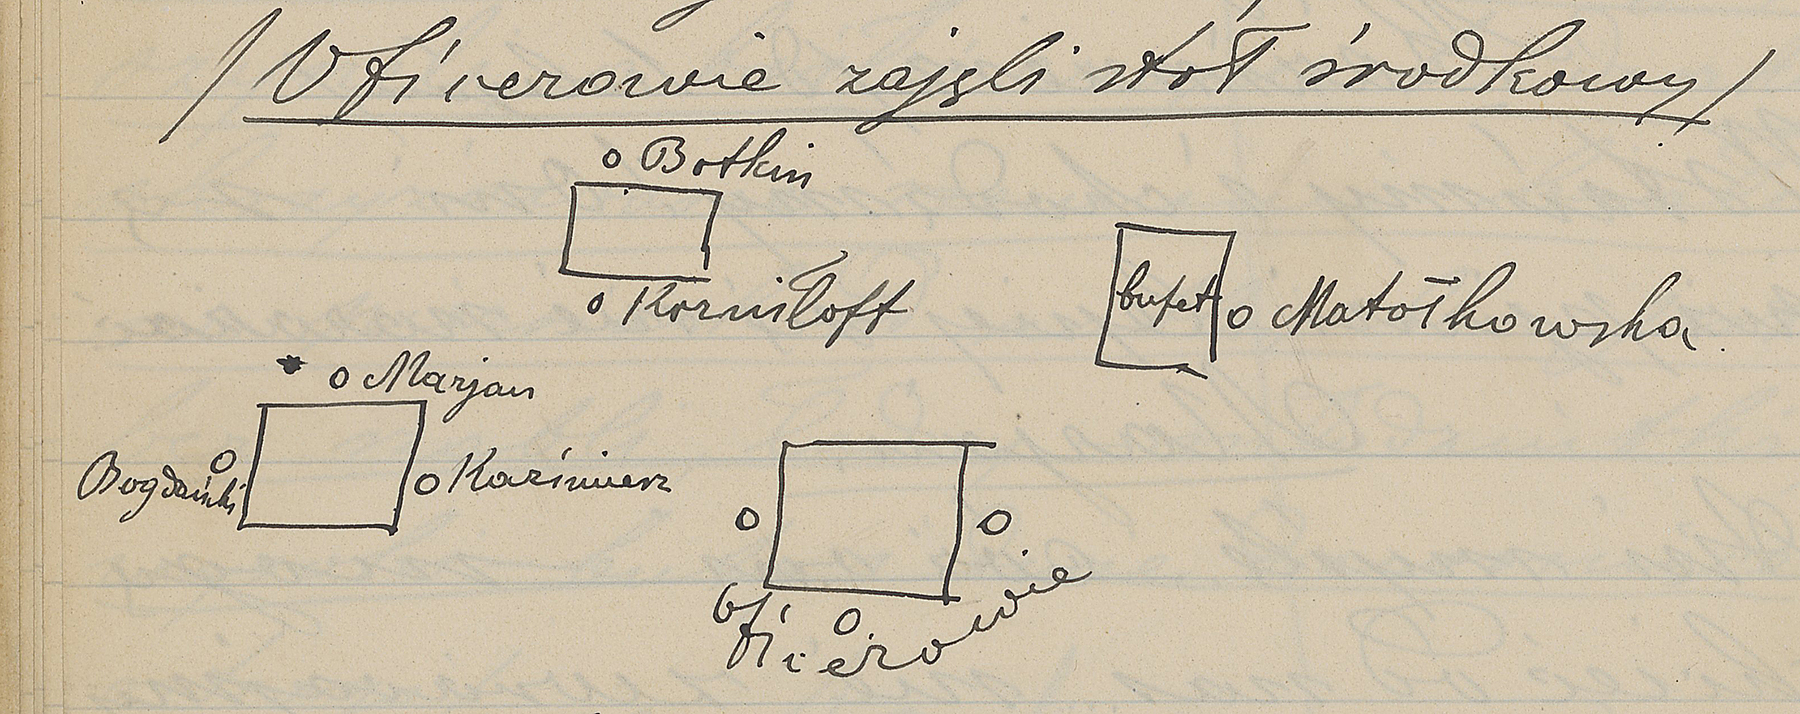 /Oficerowie zajęli stół środkowy/
o Botkin
o Korniłoff
bufet o Matołkowska
o Marjan
Bogdański o o Kazimierz
o o
o
oficerowie